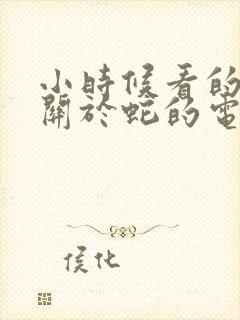 小時候看的
關於蛇的電
侯化